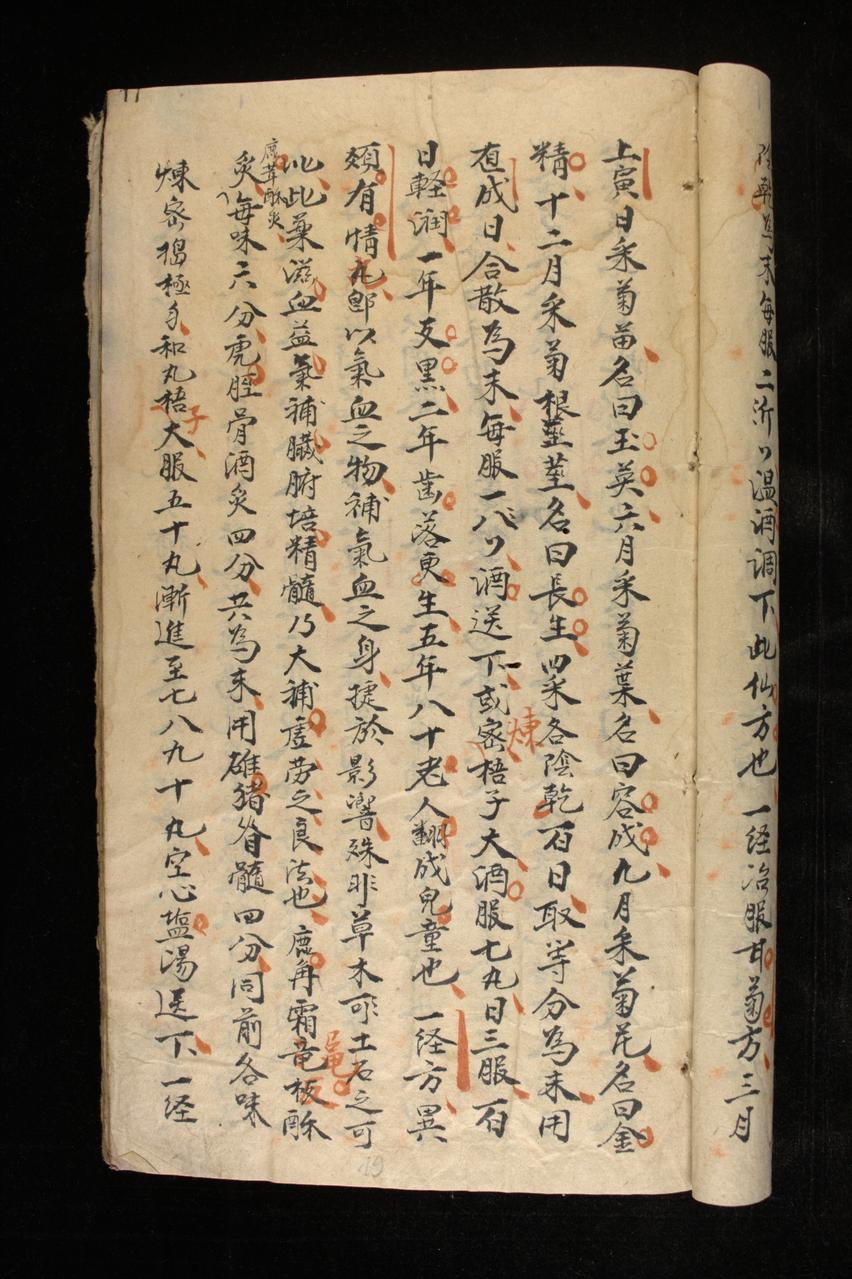 陰乾爲末每服二沂㕥温酒調下此仙方也一経治服甘菊方三月
上寅日采菊苗名曰玉英六月采菊葉名曰容成九月采菊花名曰金
精十二月采菊根莖莖名曰長生四采各陰乾百日取等分為末用
直成日合散為末每服一𠆭㕥酒送下或煉密梧子大酒服七丸日三服百
日軽潤一年髮黒二年齒落更生五年八十老人翻成兒童也一経方異
類有情丸即以氣血之物補氣血之身捷於影響殊非草木可土石之可
比此藥滋血益氣補臓腑培精髓乃大補虛劳之良法也鹿角霜龟板酥
鹿茸酥炙
炙每味六分虎脛骨酒炙四分共為末用雄猪脊髓四分同前各味
煉密搗極匀和丸梧子大服五十丸漸進至七八九十丸空心塩湯送下一経
19